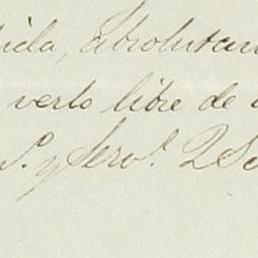 ida, absolutam
verlo libre de
S. y Serv.r QS